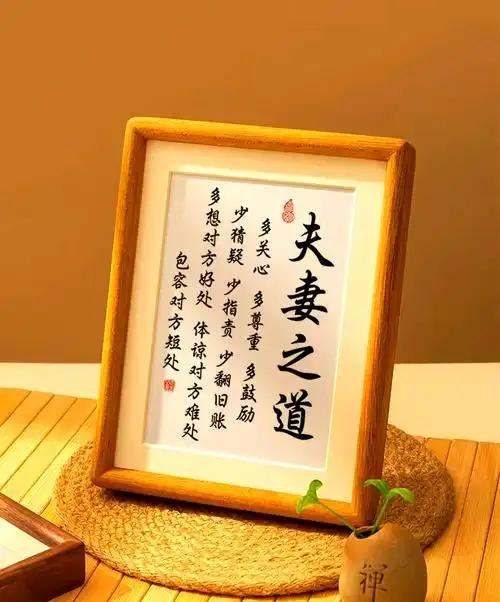 夫妻之道
多关心 多尊重 多鼓励
少猜疑 少指责 少翻旧账
多想对方好处 体谅对方难处
包容对方短处
禅